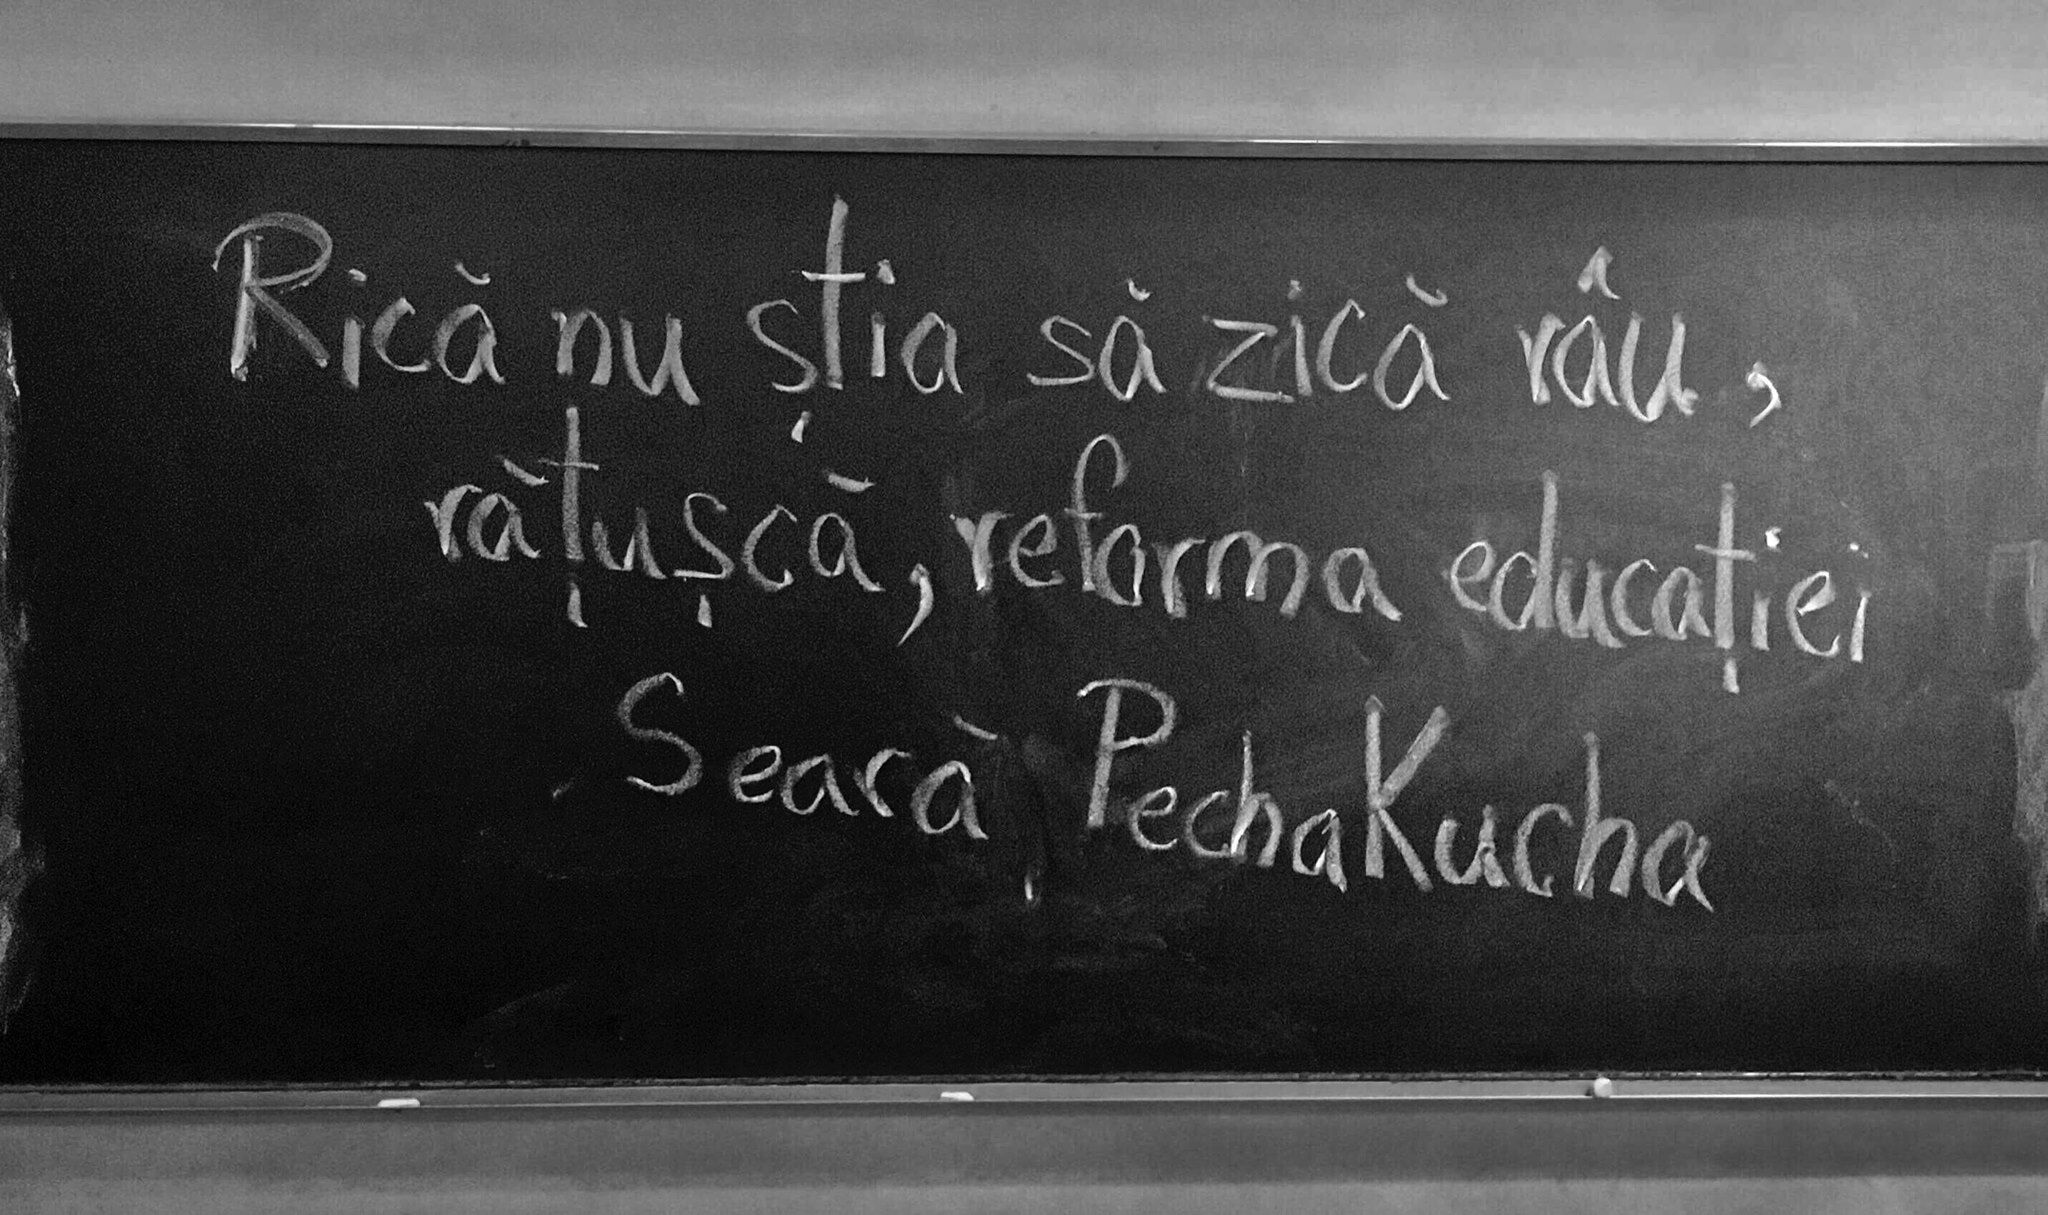 Rică nu știa să zică râu,
rățușcă, reforma educației
Seară PechaKucha